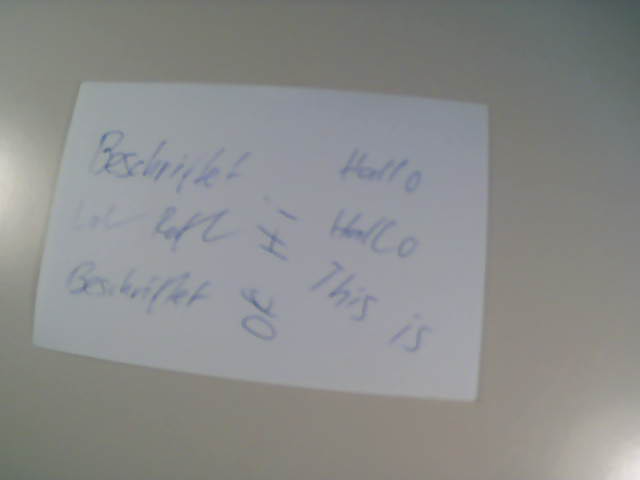 Beschriftet Hallo
Hi Hallo
Beschriftet OK This is